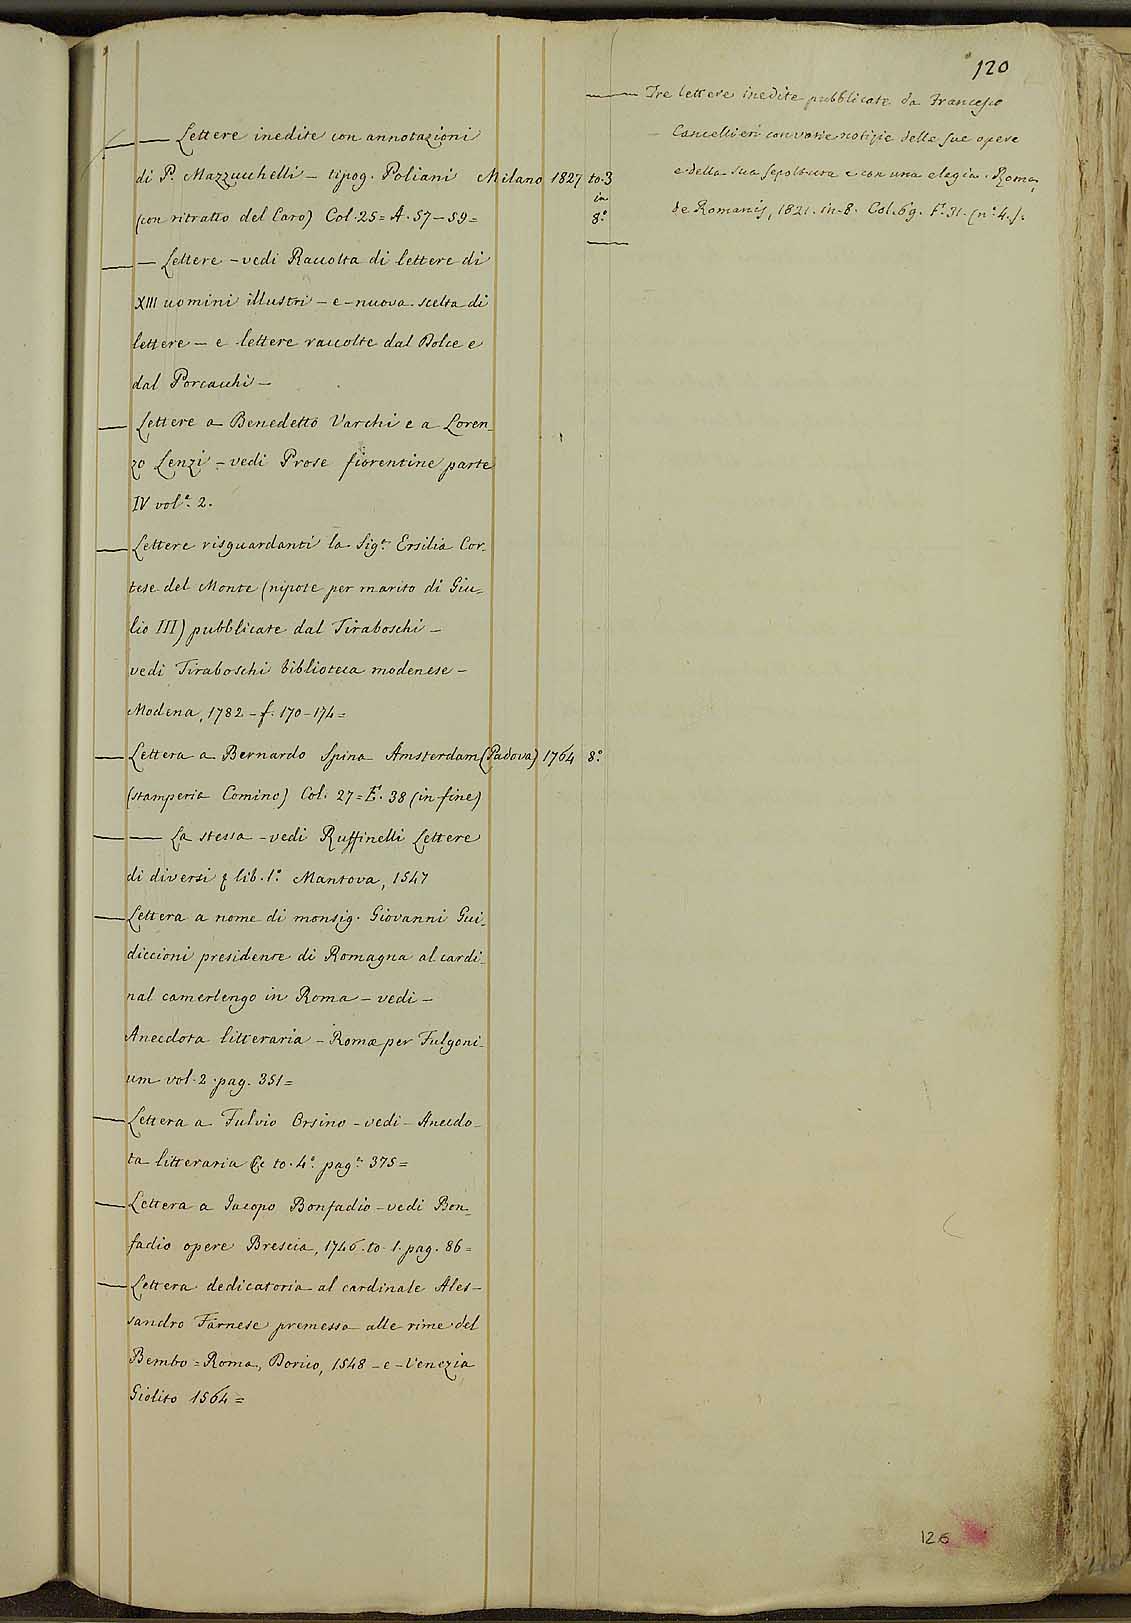 120
— — Lettere inedite con annotazioni
di P. Mazzucchelli — tipog. Poliani Milano 1827 to. 3
in
(con ritratto del Caro) Col. 25 = A. 57 — 59 = 8.°
— — Lettere — vedi Raccolta di lettere di
XIII uomini illustri — e — nuova scelta di
lettere — e lettere raccolte dal Dolce e
dal Porcacchi —
— Lettere a Benedetto Varchi e a Loren-
zo Lenzi — vedi Prose fiorentine parte
IV vol.e 2.
— Lettere risguardanti la Sig.a Ersilia Cor-
tese del Monte (nipote per marito di Giu-
lio III) pubblicate dal Tiraboschi —
vedi Tiraboschi biblioteca modenese —
Modena, 1782 — f. 170 — 174 =
— Lettera a Bernardo Spina Amsterdam (Padova) 1764 8.°
(stamperia Comino) Col. 27 = E. 38 (in fine)
— — La stessa — vedi Ruffinelli Lettere
di diversi lib. 1.° Mantova, 1547
— Lettera a nome di monsig. Giovanni Gui-
diccioni presidente di Romagna al cardi-
nal camerlengo in Roma — vedi —
Anecdota litteraria — Romæ per Fulgoni-
um vol. 2. pag. 351 =
— Lettera a Fulvio Orsino — vedi — Anecdo-
ta litteraria &c to. 4.° pag.a 375 =
— Lettera a Iacopo Bonfadio — vedi Bon-
fadio opere Brescia, 1746. to. 1. pag. 86 =
— Lettera dedicatoria al cardinale Ales-
sandro Farnese premessa alle rime del
Bembo = Roma, Dorico, 1548 — e — Venezia
Giolito 1564 =
— — Tre lettere inedite pubblicate da Francesco
Cancellieri con varie notizie delle sue opere
e della sua sepoltura e con una elegia. Roma,
de Romanis, 1821. in-8. Col. 69. F. 31. (n.° 4.).
126